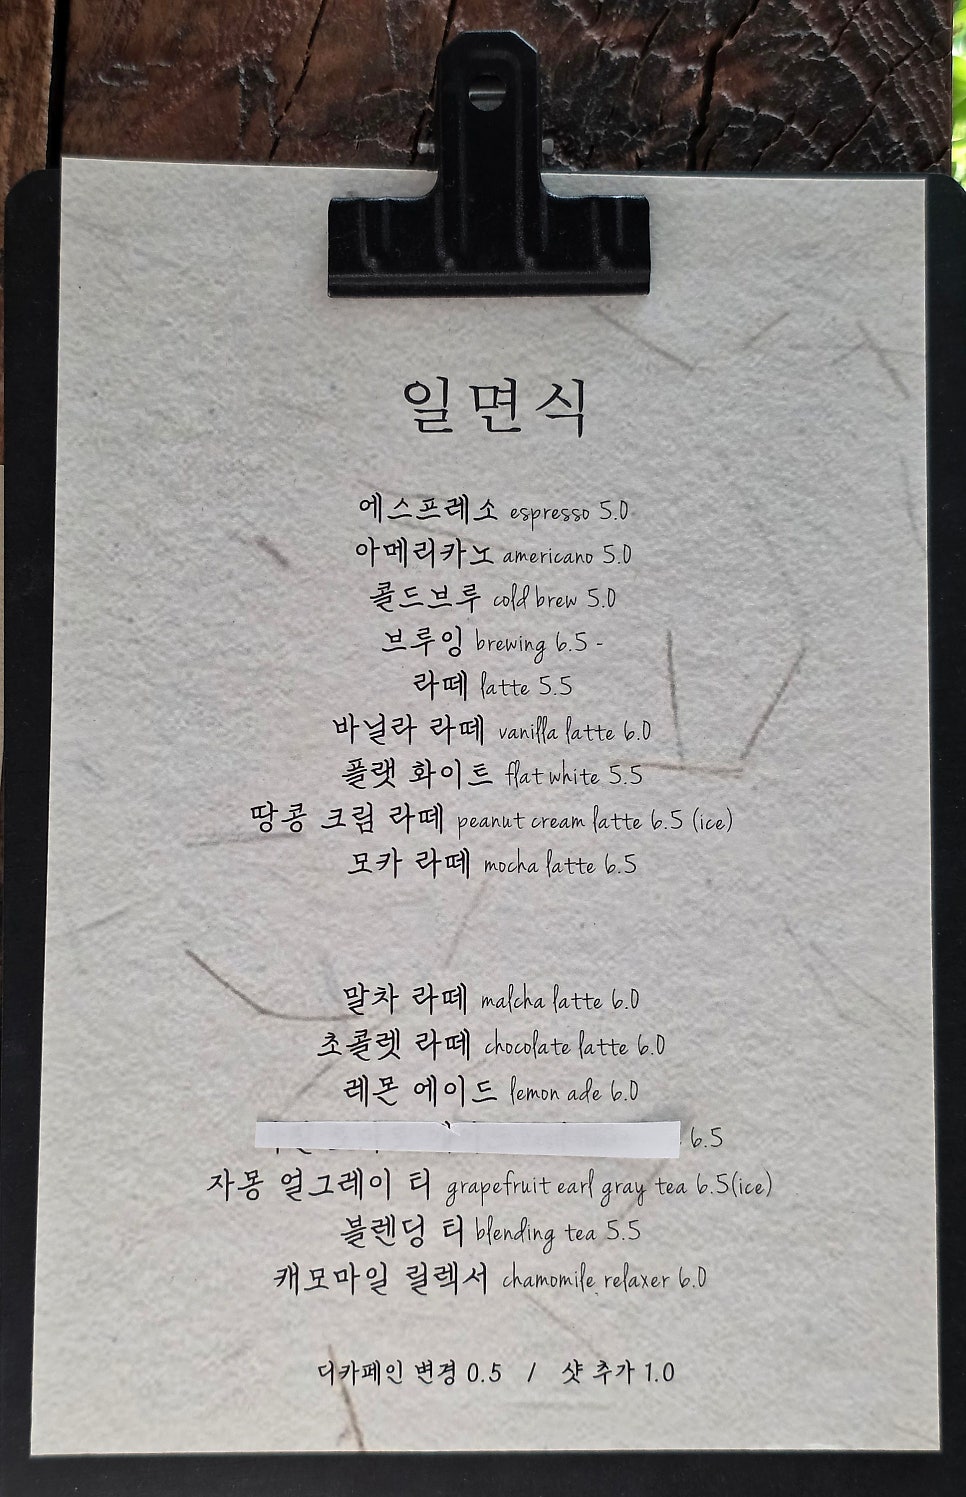 일면식
에스프레소 espresso 5.0
아메리카노 americano 5.0
콜드브루 cold brew 5.0
브루잉 brewing 6.5 -
라떼 latte 5.5
바닐라 라떼 vanilla latte 6.0
플랫 화이트 flat white 5.5
땅콩 크림 라떼 peanut cream latte 6.5 (ice)
모카 라떼 mocha latte 6.5
말차 라떼 malcha latte 6.0
초콜렛 라떼 chocolate latte 6.0
레몬 에이드 lemon ade 6.0
6.5
자몽 얼그레이 티 grapefruit earl gray tea 6.5(ice)
블렌딩 티 blending tea 5.5
캐모마일 릴렉서 chamomile relaxer 6.0
디카페인 변경 0.5 / 샷 추가 1.0